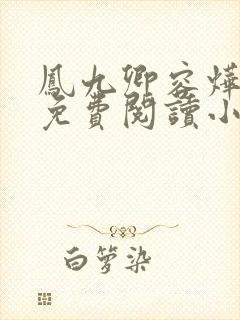 鳳九卿容燁
免費閱讀小
白箩染